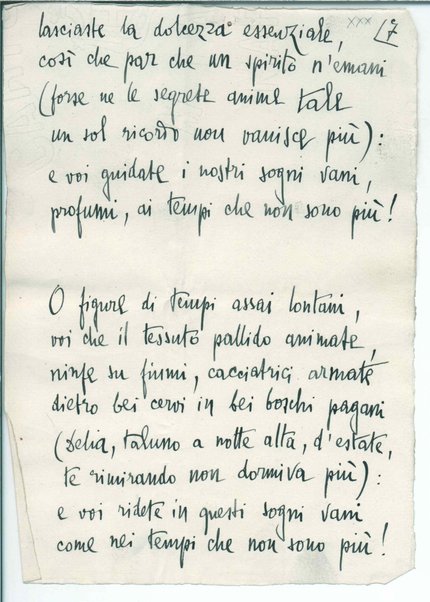 xxx 47
lasciaste la dolcezza essenziale,
così che par che un spirito n'emani
(forse ne le segrete anime tale
un sol ricordo non vanisce più):
e voi guidate i nostri sogni vani,
profumi, ai tempi che non sono più!
O figure di tempi assai lontani,
voi che il tessuto pallido animate,
ninfe su fiumi, cacciatrici armate
dietro bei cervi in bei boschi pagani
(Delia, taluno a notte alta, d'estate,
te rimirando non dormiva più):
e voi ridete in questi sogni vani
come nei tempi che non sono più!